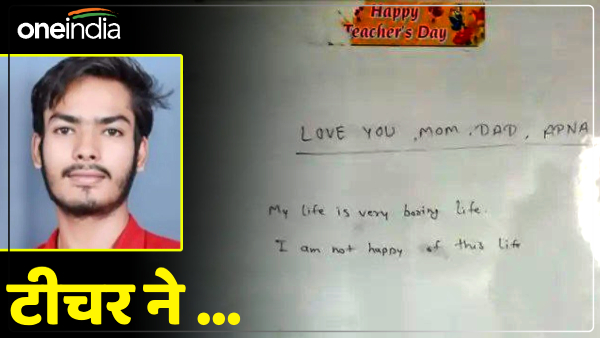 oneindia
Happy
Teacher's Day
LOVE YOU , MOM , DAD , APNA
My life is very boring life.
I am not happy of this life
टीचर ने ...